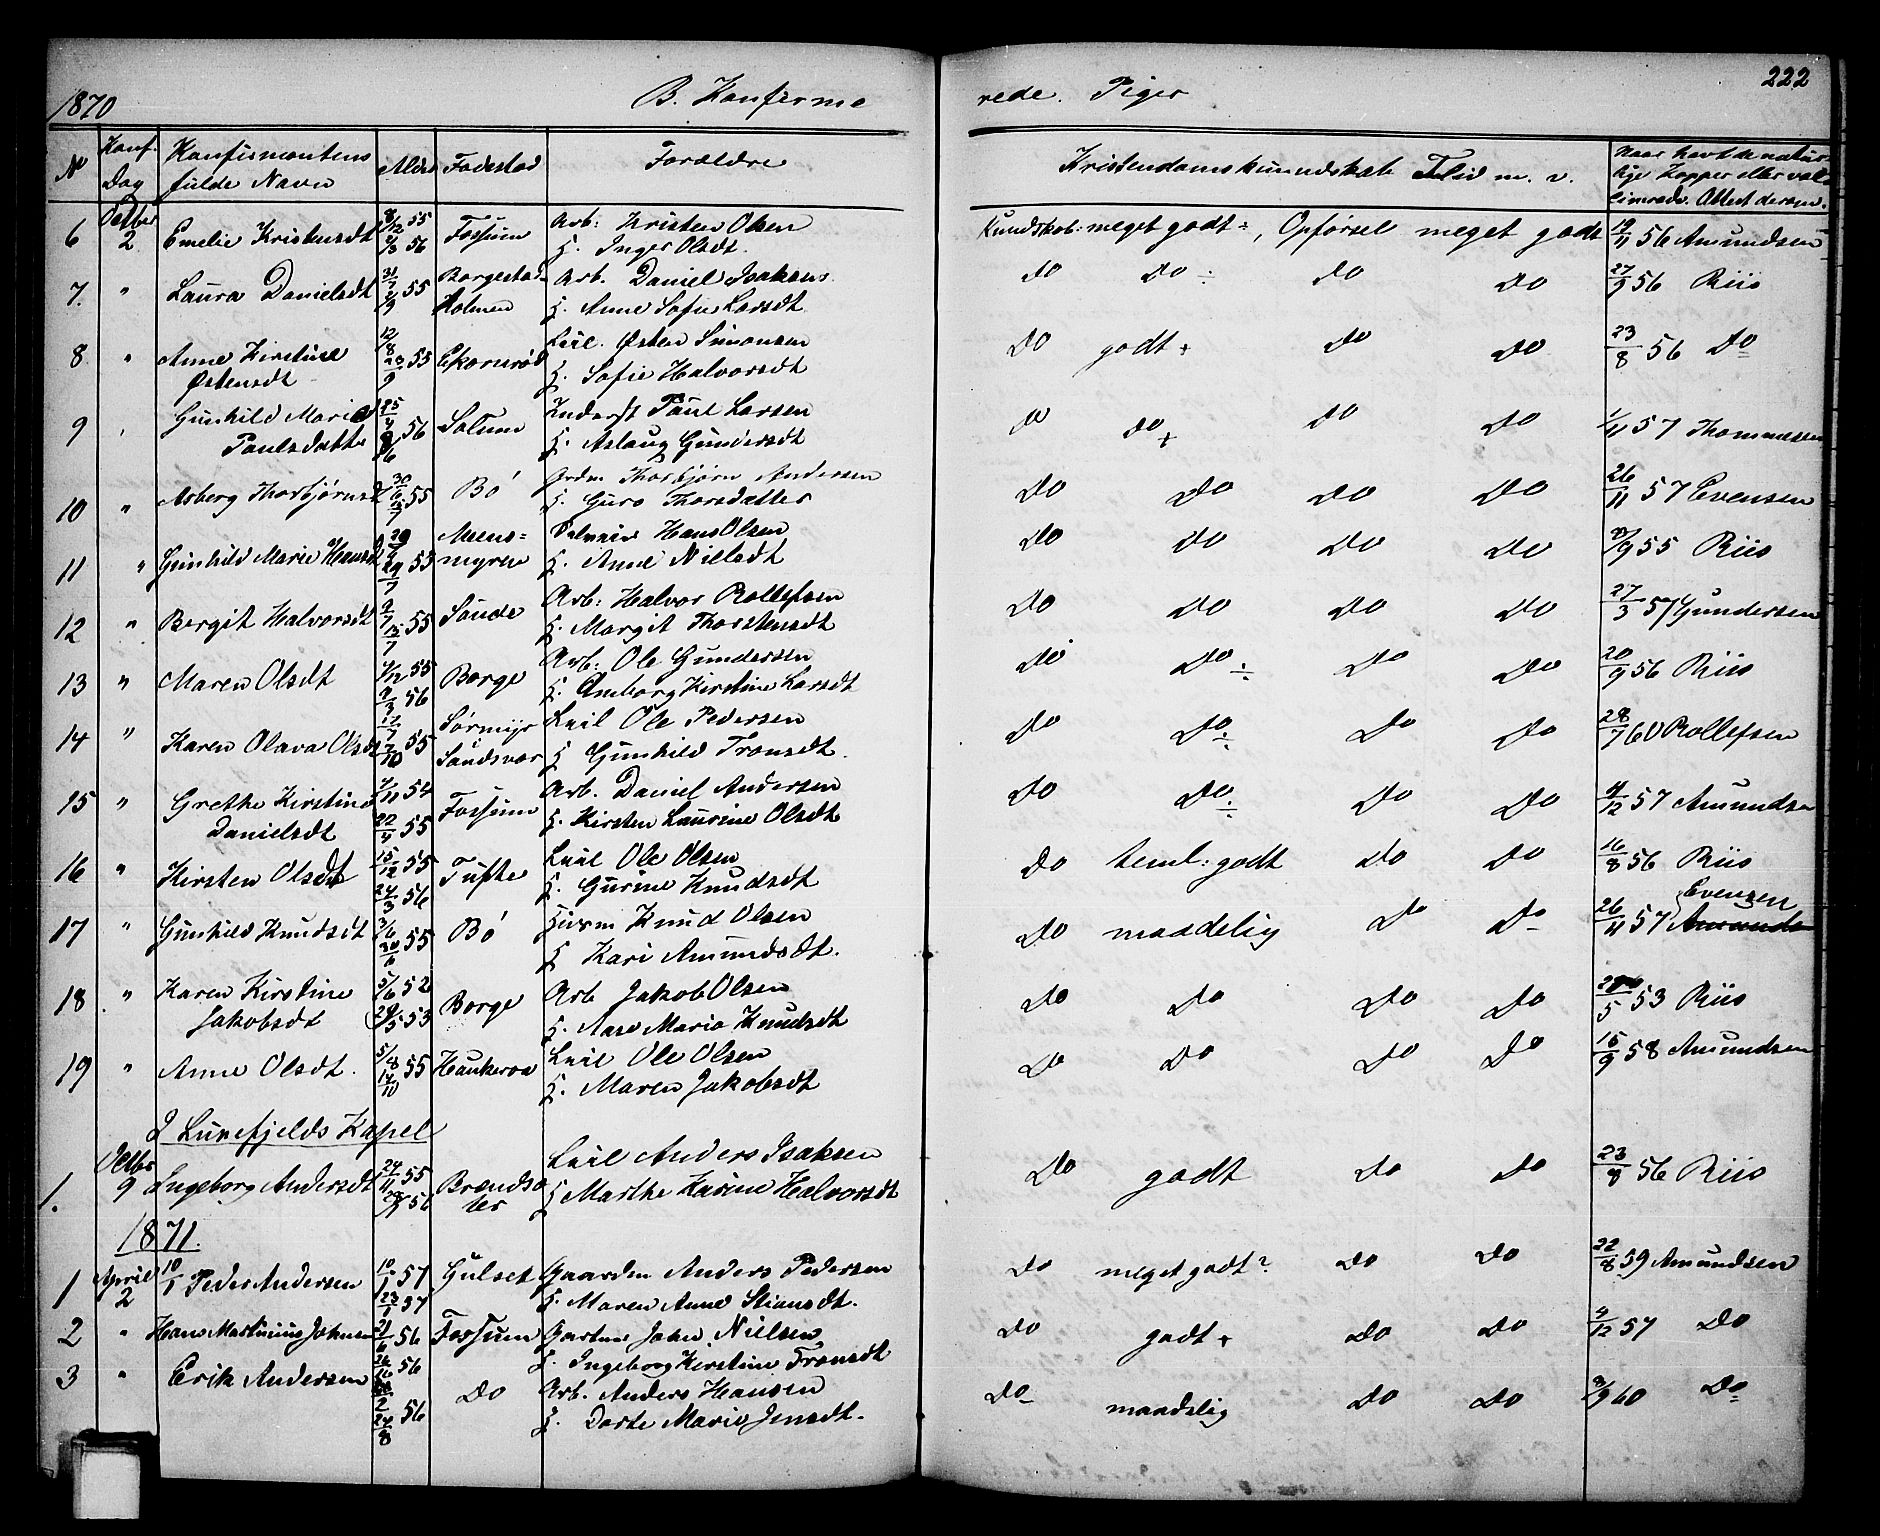 1870 B. Konfirmerede. Piger 222
N Konf. Dag Konfirmantens fulde Navn Alder Fødested Forældre Kristendomskundskab Flid m. v. Naar havt de naturlige Kopper eller vaksinerede. Attest derom.
6 Octbr 2 Emelie Kristensdt 8/12 55 2/3 56 Fossum Arb: Kristen Olsen Kundskab: meget godt ÷, Opførsel meget godt 19/11 56 Amundsen
H. Inger Olsdt.
7. " Laura Danielsdt 31/7 2/9 55 Borgestad Arb. Daniel Isaksens Do Do ÷ Do Do 27/9 56 Riis
Holmen H. Anne Sofie Larsdt
8. " Anne Kirstine 12/8 23/9 55 Ekornrød Leil. Østen Simonsen Do godt + Do Do 23/8 56 Do
Østensdt H. Sofie Halvorsdt
9 " Gunhild Marie 25/4 8/6 56 Solum Inderst Paul Larsen Do do + Do Do 1/11 57 Thommesen
Paulsdatter H. Aslaug Gundersdt
10 " Asberg Thorbjørnsdt 30/6 13/7 55 Bø Grdm Thorbjørn Andersen Do Do Do Do 26/11 57 Evensen
H. Guro Thorsdatter
11 " Gunhild Marie Hansdt 29/7 55 Meens= Hans Olsen Do Do Do Do 9 55 Riis
myren H. Anne Nielsdt
12 " Bergit Halvorsdt 2/7 13/7 55 Saude Arb: Halvor Rollefsen Do Do Do Do 27/3 57 Gundersen
H. Margit Thorstensdt
13 " Maren Olsdt 4/12 55 2/3 56 Borge Arb: Ole Gundersen Do Do ÷ Do Do 20/9 56 Riis
H. Amborg Kirstine Larsdt
14 " Karen Olava Olsdt 17/7 7/10 55 Sørmyr Leil Ole Pedersen Do Do ÷ Do Do 28/7 60 Rollefsen
Sandsvær H Gunhild Tronsdt.
15 " Grethe Kirstine 7/11 54 Fossum Arb. Daniel Andersen Do Do ÷ Do Do 4/12 57 Amundsen
Danielsdt 22/4 55 H. Kirsten Laurine Olsdt
16 " Kirsten Olsdt 15/12 55 24/3 56 Tufte Leil Ole Olsen Do teml: godt Do Do 16/8 56 Riis
H. Gurine Knudsdt
17 " Gunhild Knudsdt 3/6 30/6 55 Bø Husm Knud Olsen Do maadelig Do Do 26/11 57 Evensen
H Kari Amundsdt.
18 " Karen Kirstine 5/6 52 Borge Arb Jakob Olsen Do Do Do Do 5 53 Riis
Jakobsdt (29/5 53 H. Aase Maria Knudsdt
19 " Anne Olsdt. 5/8 14/10 55 Haukeraa Leil Ole Olsen Do Do Do Do 15/9 58 Amundsen
H. Maren Jakobsdt
I Lurefjelds Kapel
1. Octbr 9 Ingeborg Andersdt 24/11 55 56 Brændsæ Leil Anders Isaksen Do godt Do Do 23/8 56 Riis
ter H Marthe Karine Halvorsdt
1871.
1 April 2 Peder Andersen 10/1 57 23/1 57 Gulset Gaardm Anders Pedersen Do meget godt? Do Do 22/8 59 Amundsen
H. Maren Anne Stiansdt.
2 " Hans Martinius Johnsen 21/6 56 Fossum Gartner John Nielsen Do godt + Do Do 4/12 57 Do
56 H. Ingeborg Kirstine Tronsdt
3 " Erik Andersen 2 24/8 56 Do Arb. Anders Hansen Do maadelig Do Do 3/9 60 Do
H. Dorte Marie Jensdt.